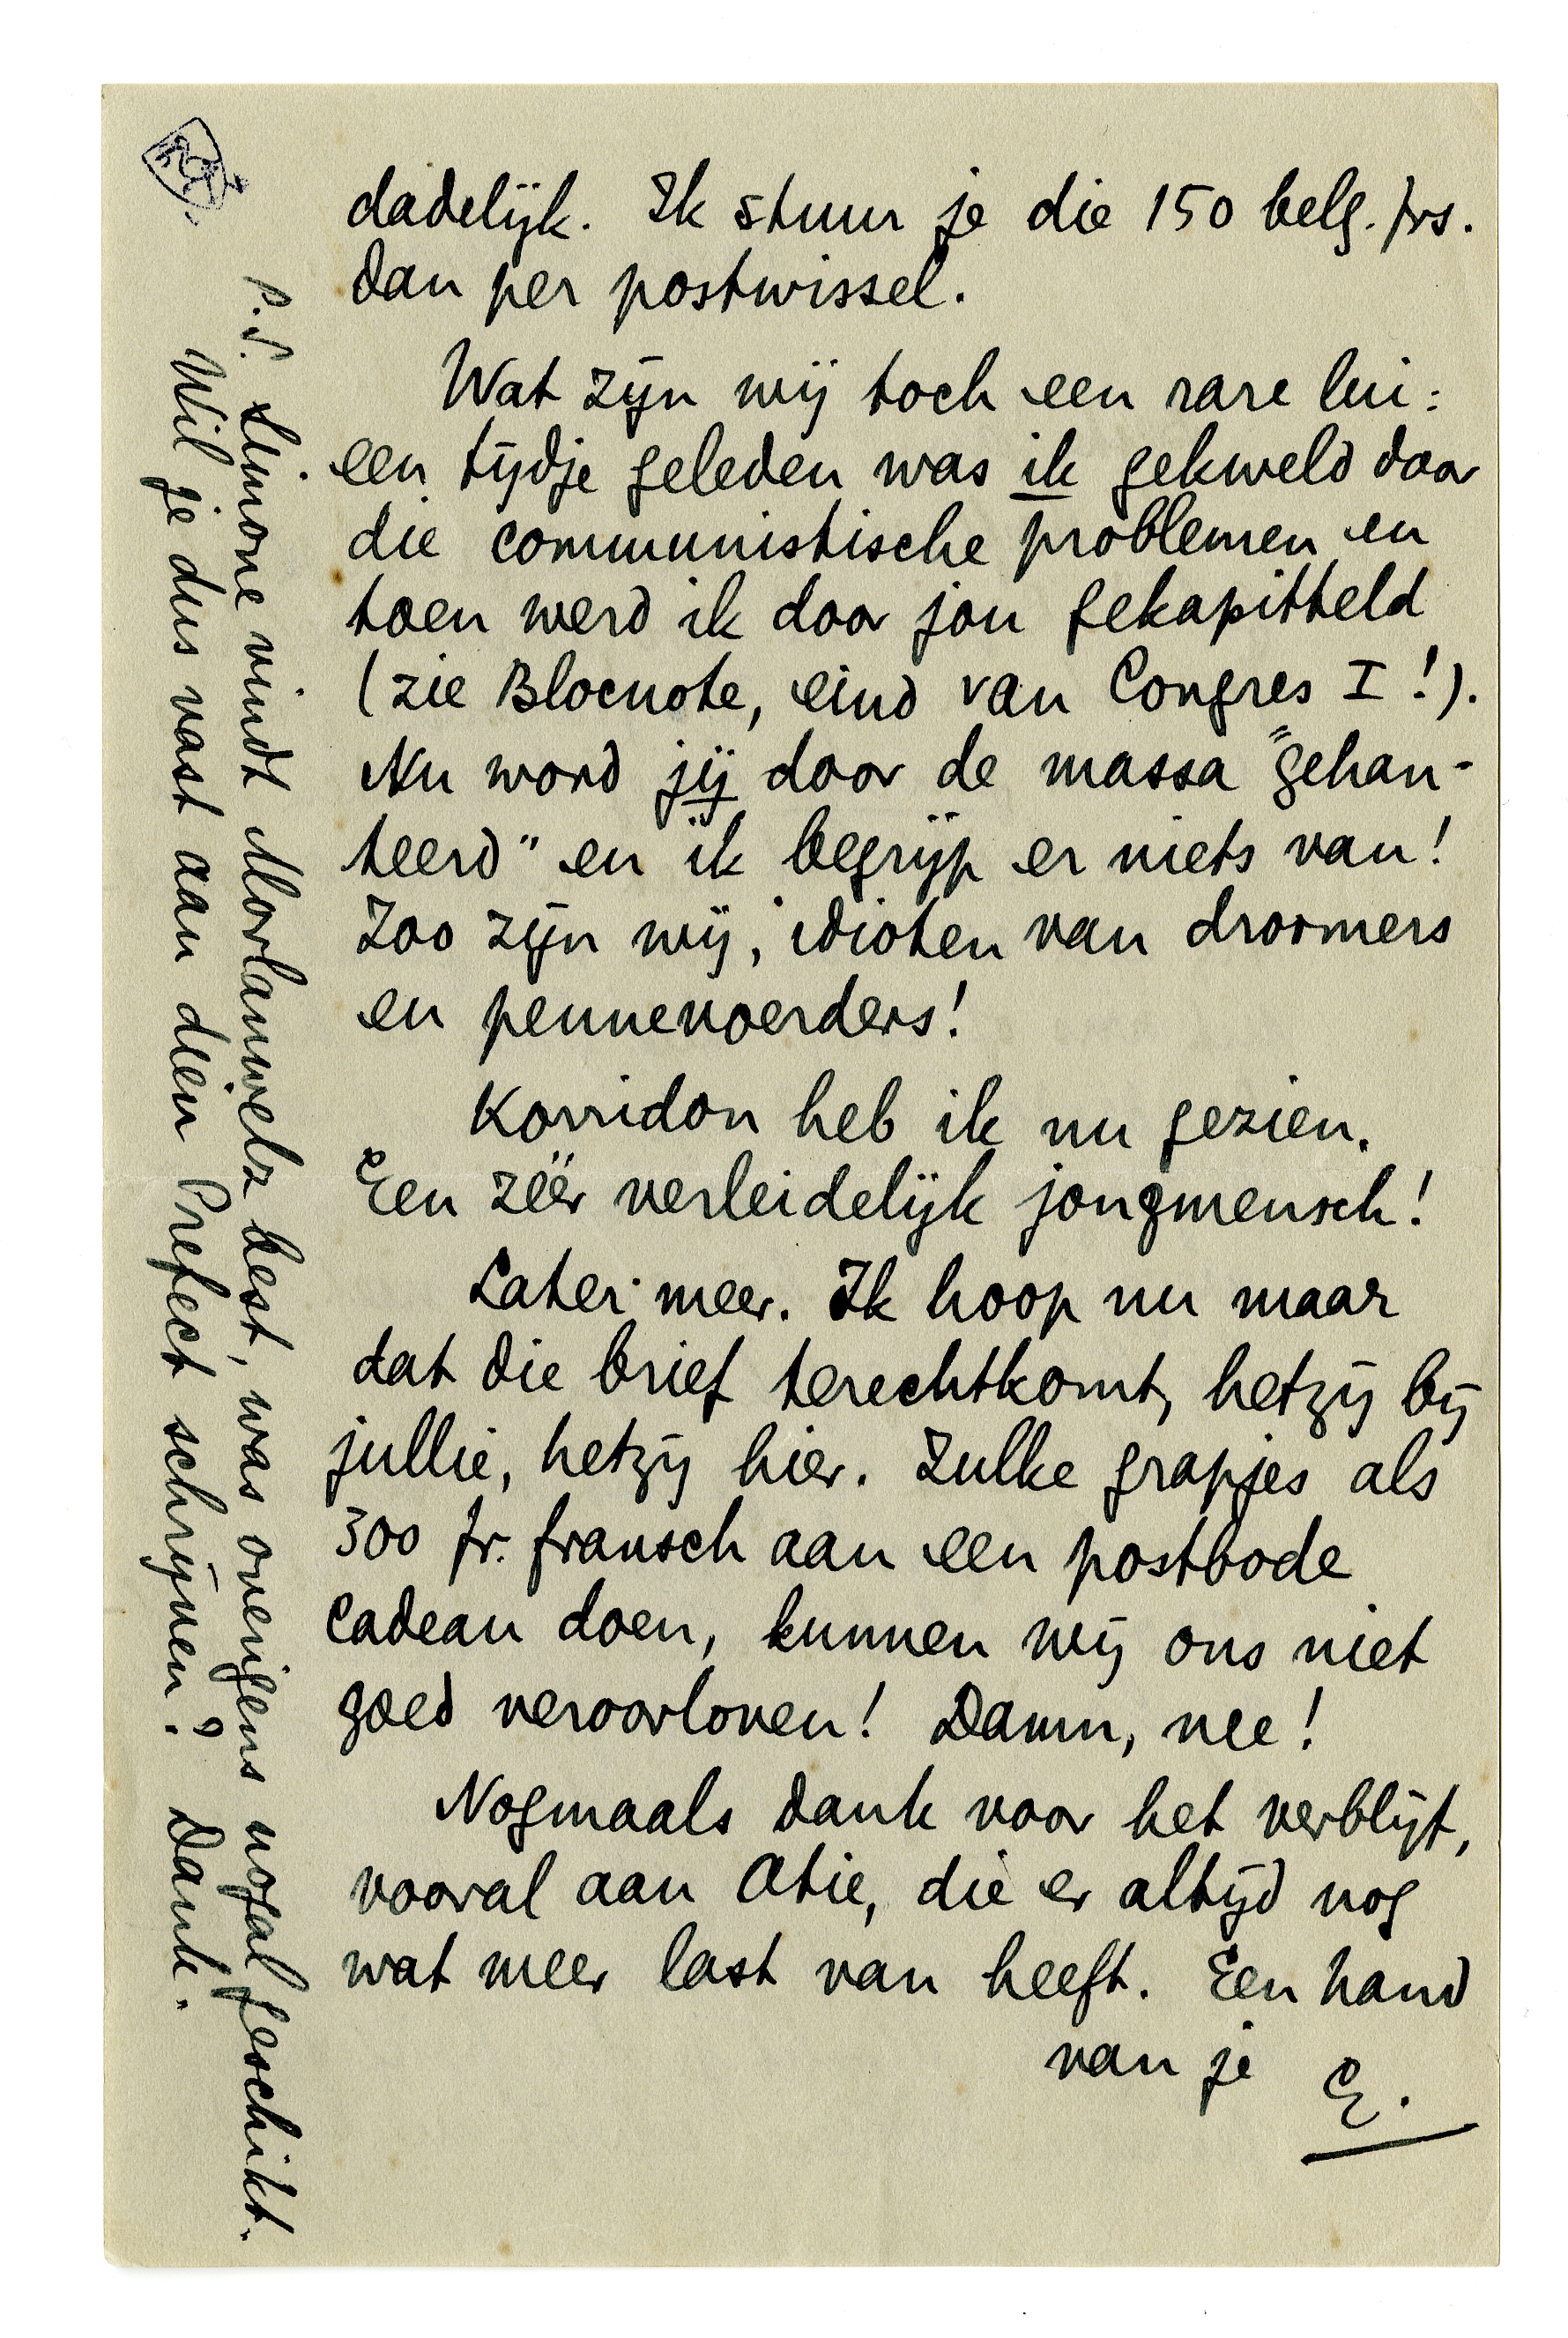 dadelijk. Ik stuur je die 150 belg. frs.
dan per postwissel.
Wat zijn wij toch een rare lui:
een tijdje geleden was ik gekweld door
die communistische problemen en
toen werd ik door jou gekapitteld
(zie Blocnote, eind van Congres I!).
Nu word jij door de massa "gehan-
teerd" en ik begrijp er niets van!
Zoo zijn wij, idioten van droomers
en pennevoerders!
Korridon heb ik nu gezien.
Een zéér verleidelijk jongmensch!
Later meer. Ik hoop nu maar
dat die brief terechtkomt, hetzij bij
jullie, hetzij hier. Zulke grapjes als
300 fr. fransch aan een postbode
cadeau doen, kunnen wij ons niet
goed veroorloven! Damn, nee!
Nogmaals dank voor het verblijf,
vooral aan Atie, die er altijd nog
wat meer last van heeft. Een hand
van je E.
P.S. Simone vindt Morlanwelz best, was overigens nogal geschikt.
Wil je dus vast aan dien Prefect schrijven? Dank.